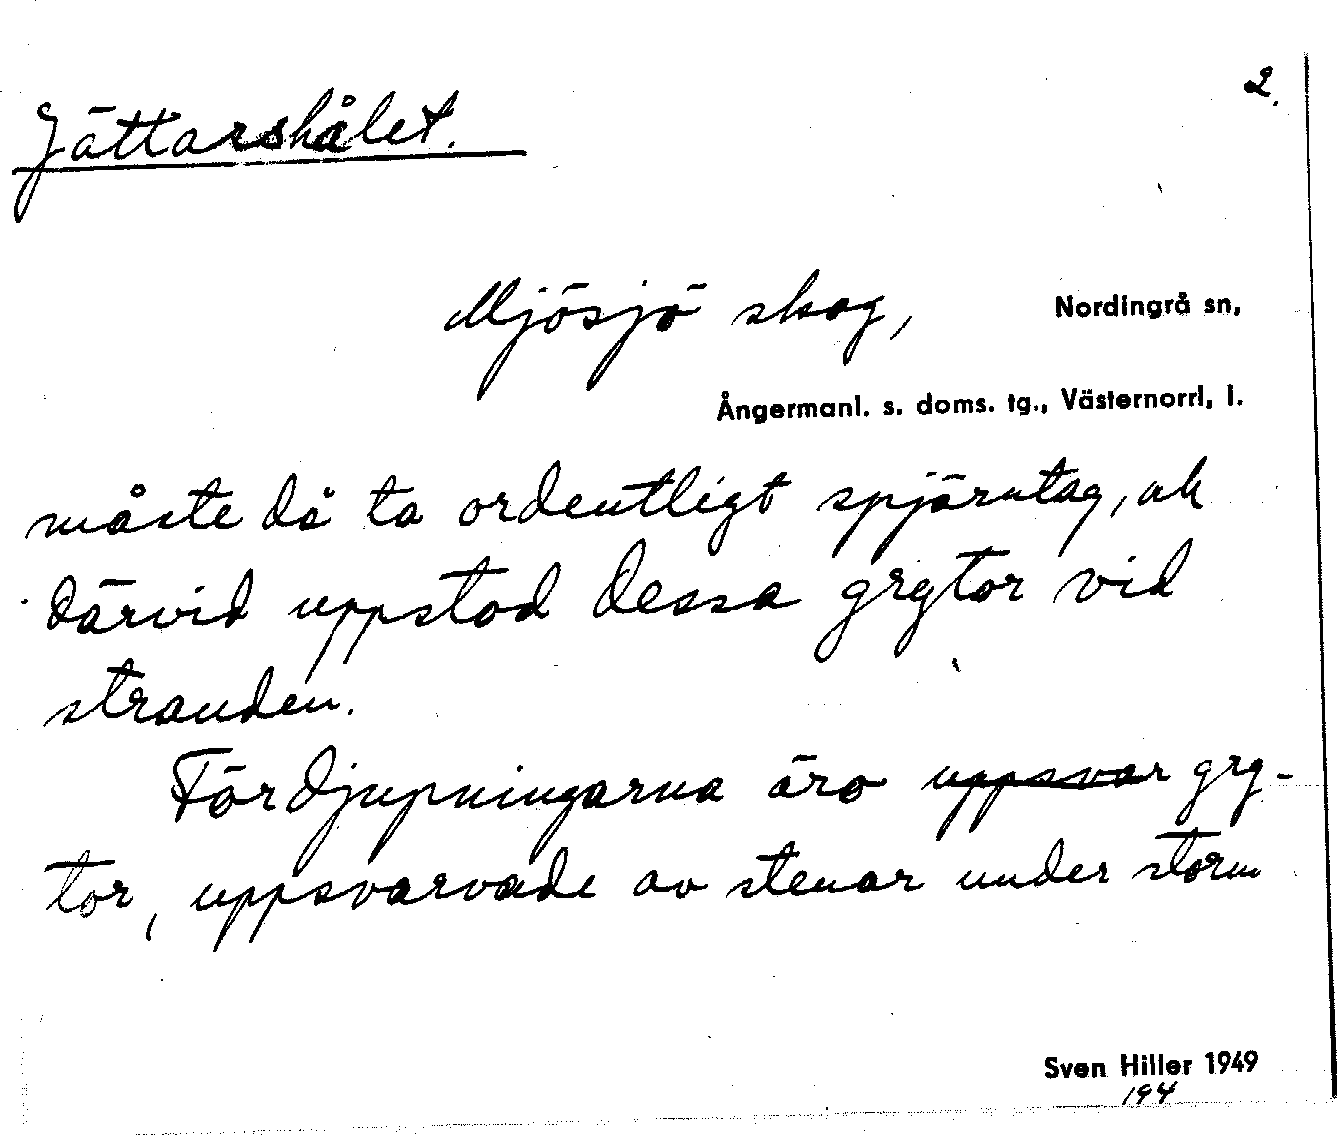 2.
Jättarshålet.
Mjösjö skog, Nordingrå sn,
Ångermanl. s. doms. tg., Västernorrl. l.
måste då ta ordentligt spjärntag, och
därvid uppstod dessa grytor vid
stranden.
Fördjupningarna äro uppsvar gry-
tor, uppsvarvade av stenar under storm
Sven Hiller 1949
194